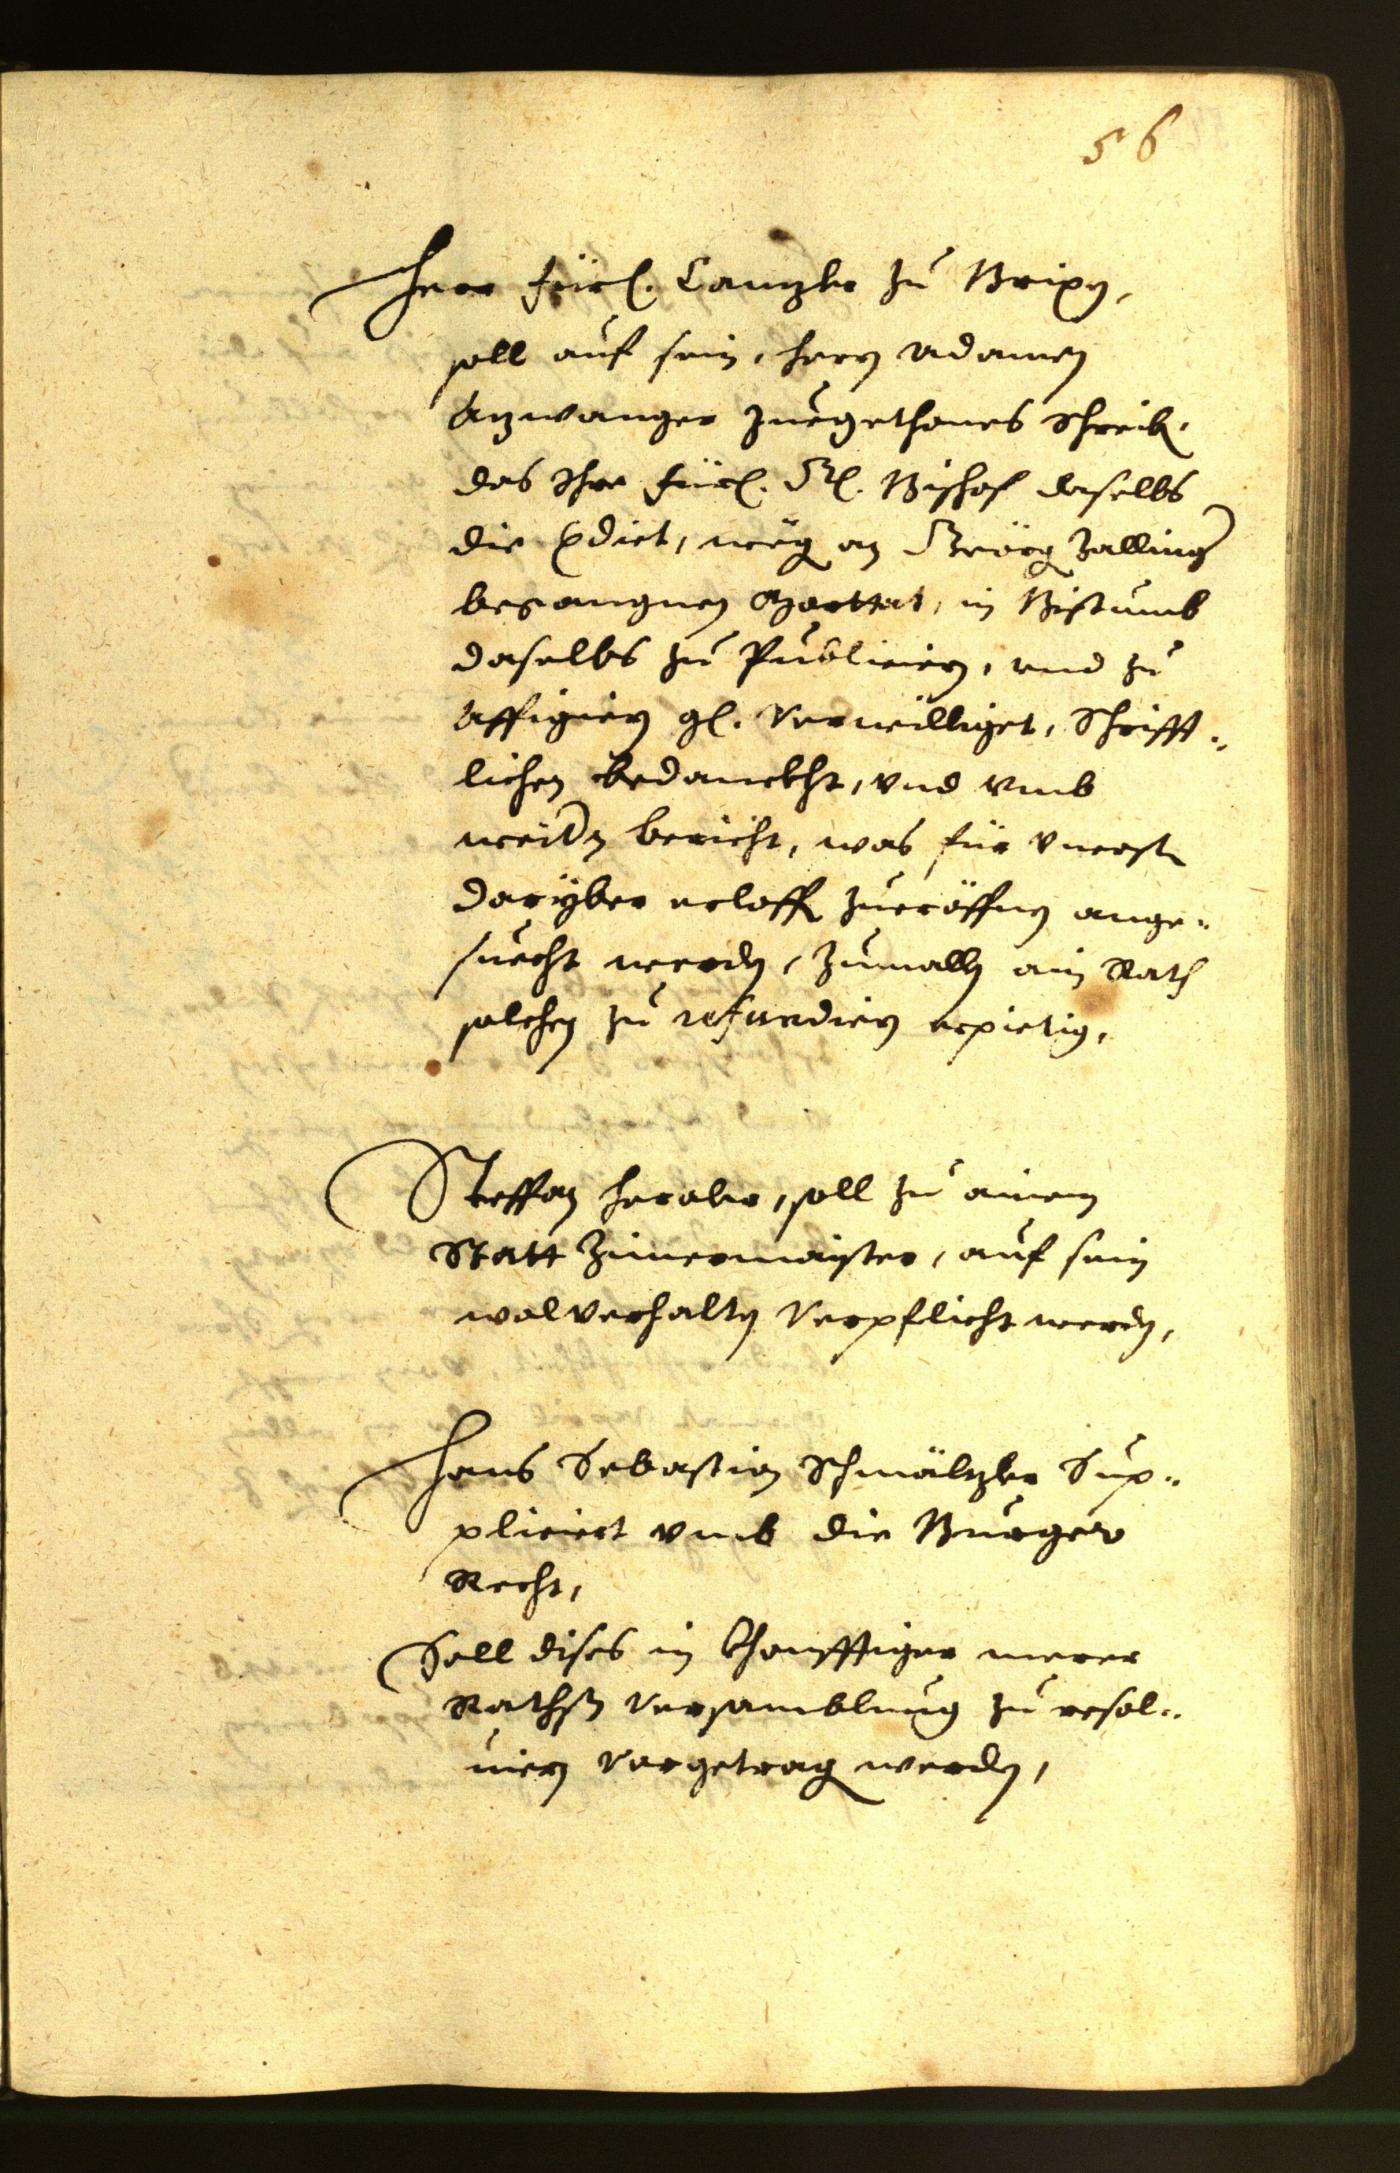 56
Herr fürl. Canzler zu Brixn,
soll auf sein, herrn Adamen
Anzwanger zuegethones Schreib,
das Ihre fürl. Gl. Bischof daselbs
die Edict, weg an Geörg Zalling
begangnen Mortthat, in Bistumb
daselbs zu Publiciern, und zu
affigiern gl. Verwilliget, Schrifft-
lichen bedanckht, vnd vmb
weitn bericht, was für vncosst
darÿber erloffn zueröffnen ange-
suecht werdn, Zumalln ain Rath
solchen zu refundiern erpietig,
Steffan heraler, soll zu ainem
Statt Zimermaister, auf sein
wolverhaltn Verpflicht werdn,
Hans Sebastian Schmältzler Sup-
pliciert vmb die Burger
Recht,
Soll dises in khonfftiger merer
Raths Versamblung zu resol-
uiern vorgetrag werdn,